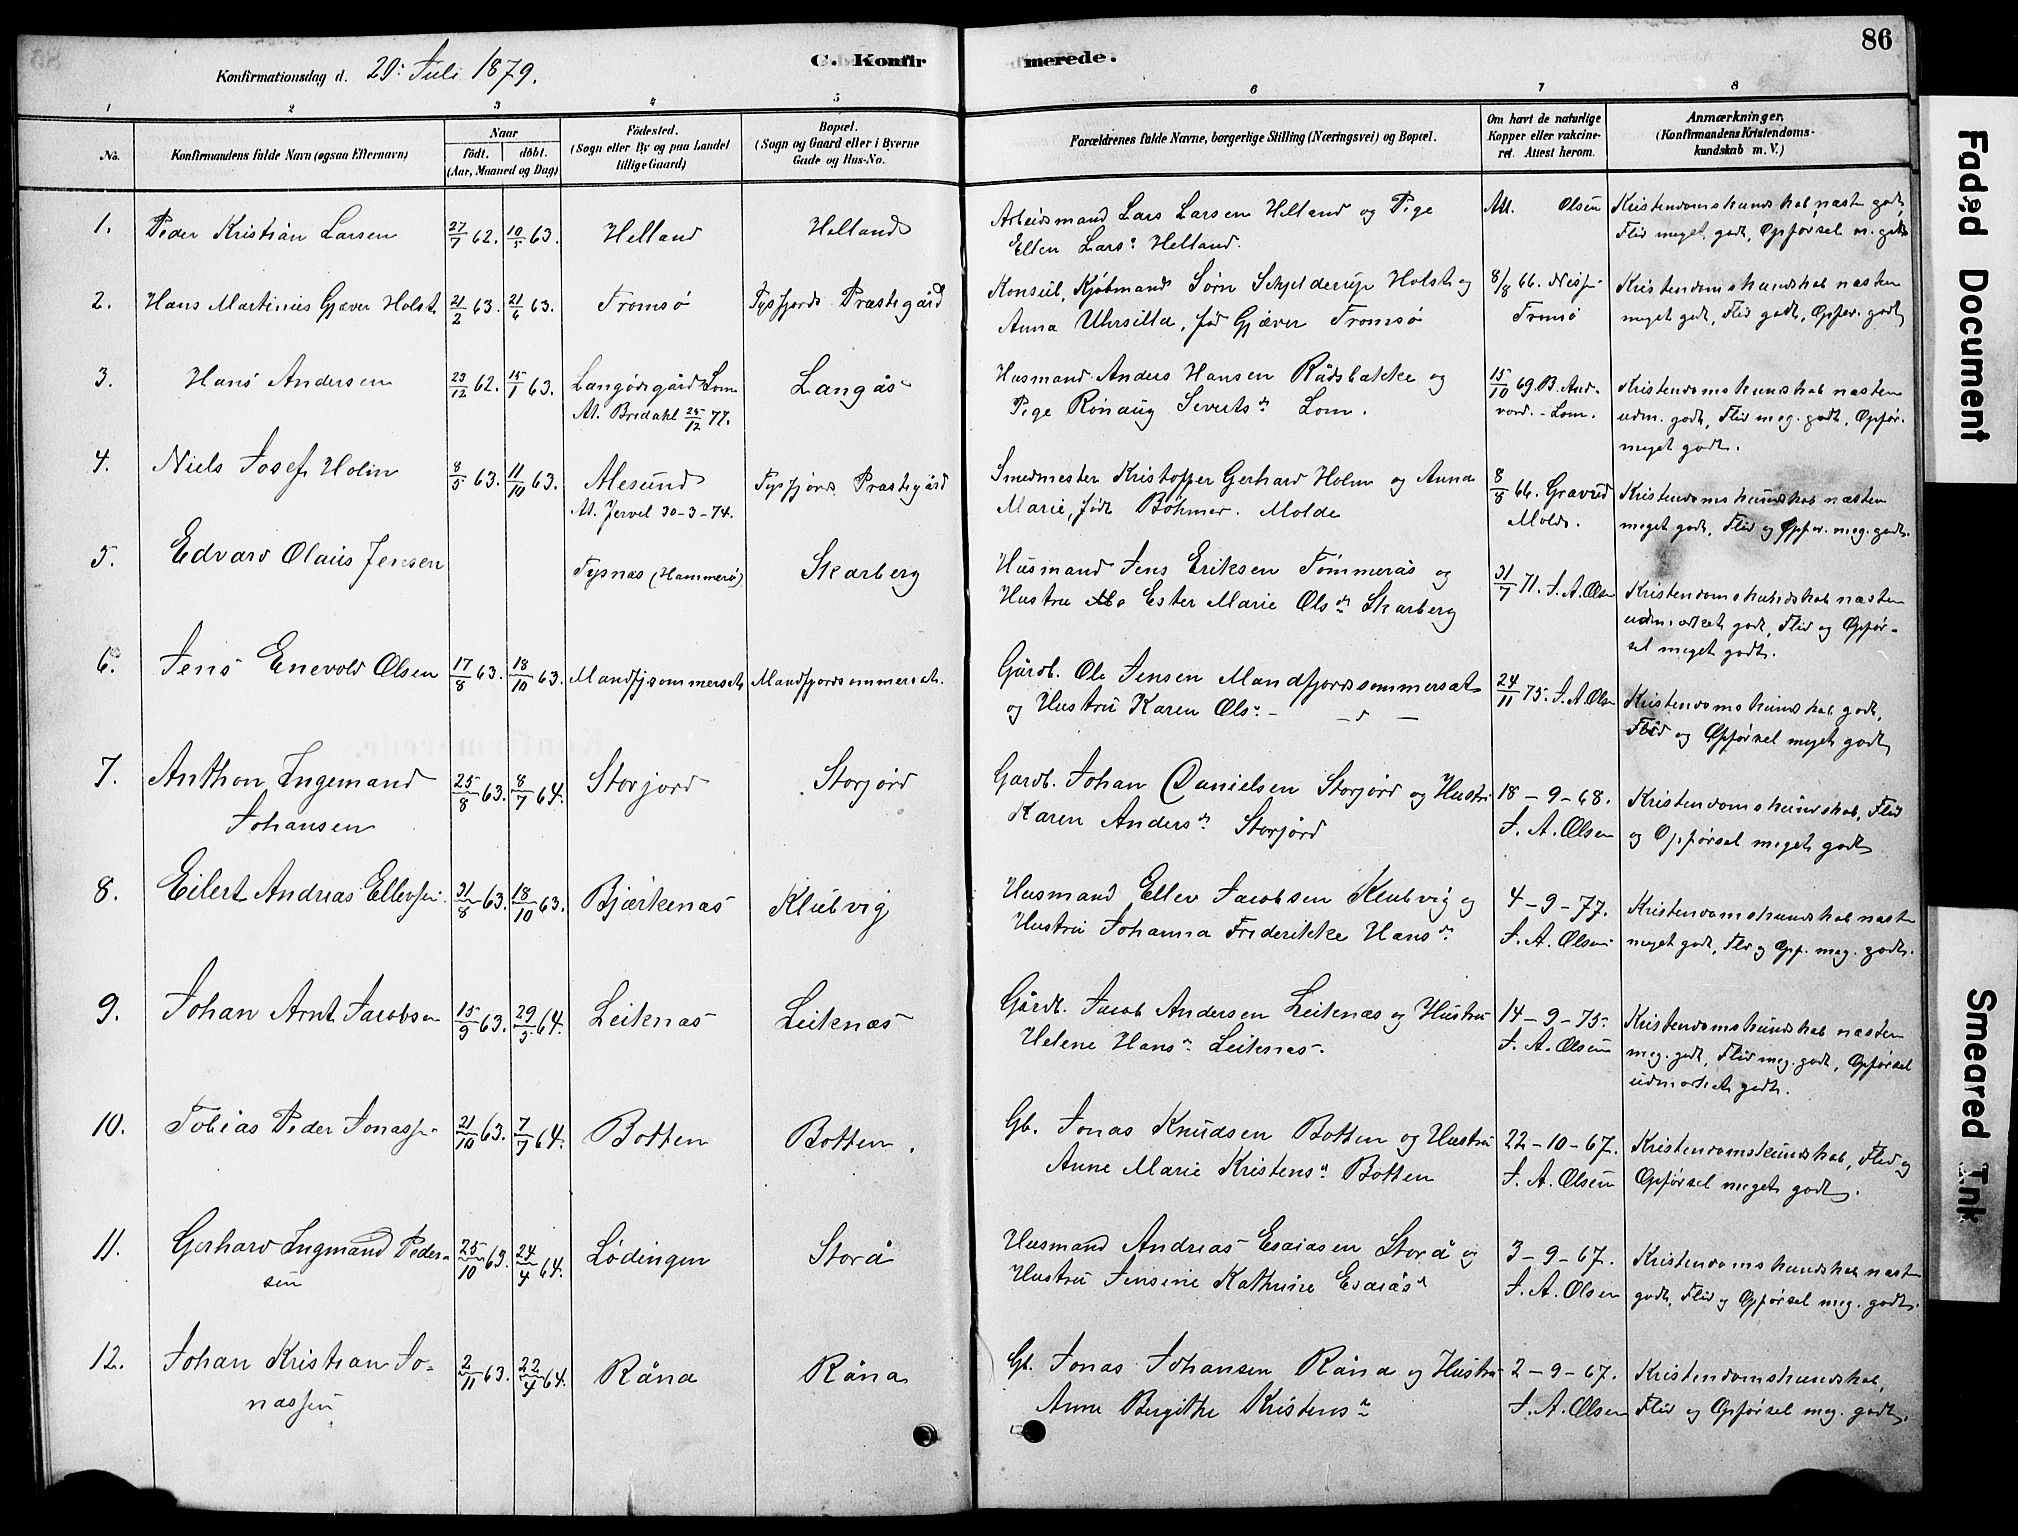 86
Konfirmationsdag d. 20: Juli 1879.
C. Konfirmerede.
1 2 3 4 5 6 7 8
No.
Konfirmandens fulde Navn (ogsaa Efternavn)
Naar
födt. döbt.
(Aar, Maaned og Dag)
Födested.
(Sogn eller By og paa Landet
tillige Gaard)
Bopæl.
(Sogn og Gaard eller i Byerne
Gade og Hus-No.
Forældrenes fulde Navne, borgerlige Stilling (Næringsvei) og Bopæl.
Om havt de naturlige
Kopper eller vakcine-
ret. Attest herom.
Anmærkninger,
(Konfirmandens Kristendoms-
kundskab m. V.)
1. Peder Kristian Larsen 27/7 62. 10/5 63. Helland Helland
Arbeidsmand Lars Larsen Helland og Pige
Ellen Larsd. Helland.
Att. Olsen
Kristendomskundskab næsten godt,
Flid meget godt, Opførsel m. godt
2. Hans Martinius Gjæver Holst 21/2 63. 21/6 63. Tromsø Tysfjords Præstegård
Konsul, Kjøbmand Sørn Schjelderup Holst og
Anna Uhrsilla, fød Gjæver Tromsø
8/8 66.
Tromsø
Kristendomskundskab næsten
meget godt, Flid godt, Opfør. godt
3. Hans Andersen 23/12 62. 15/1 63. Langødegård Lom
At. Bredahl 25/12 77.
Langås
Husmand Anders Hansen Rådsbakke og
Pige Rønaug Severtsd. Lom.
15/10 69. B. And-
vord - Lom.
Kristendomskundskab næsten
udm. godt, Flid meg. godt, Opfør.
meget godt.
4. Niels Josef Holm 8/5 63. 11/10 63. Alesund
At. Jervel 30-3-74.
Tysfjords Præstegård
Smedmester Kristoffer Gerhard Holm og Anna
Marie, født Bøhmer. Molde
8/8 66. Gravrud
Molde.
Kristendomskundskab næsten
meget godt, Flid og Opfør. meg. godt.
5. Edvard Olaus Jensen Tysnæs (Hammerø) Skarberg
Husmand Jens Eriksen Tømmerås og
Hustru Ester Marie Olsd. Skarberg
31/7 71. J. A. Olsen
Kristendomskundskab næsten
udmærket godt, Flid og Opfør-
sel meget godt.
6. Jens Enevold Olsen 17/8 63. 18/10 63. Mandfjsommersæt Mandfjordsommersæt.
Gårdb. Ole Jensen Mandfjordsommersæt
og Hustru Karen Olsd. - - d -
24/11 75. J. A. Olsen
Kristendomskundskab godt,
Flid og Opførsel meget godt
7. Anthon Ingemand
Johansen
25/8 63. 8/7 64. Storjord Storjord
Gardb. Johan Danielsen Storjord og Hustru
Karen Andersd. Storjord
18-9-68.
J. A. Olsen
Kristendomskundskab, Flid
og Opførsel meget godt
8. Eilert Andreas Ellevsen 31/8 63. 18/10 63. Bjærkenæs Klubvig
Husmand Ellev Jacobsen Klubvig og
Hustru Johanna Frederikke Hansd.
4-9-77.
J. A. Olsen
Kristendomskundskab næsten
meget godt, Flid og Opf. meg. godt.
9. Johan Arnt Jacobsen 15/9 63. 29/5 64. Leiknæs Leiknæs
Gårdb. Jacob Andersen Leiknæs og Hustru
Helene Hansd. Leiknæs.
14-9-75.
J. A. Olsen
Kristendomskundskab næsten
meg. godt, Flid meg. godt, Opførsel
udmærket godt.
10. Tobias Peder Jonassen 21/10 63. 7/7 64. Botten Botten.
Gb. Jonas Knudsen Botten og Hustru
Anne Marie Kristensd. Botten
22-10-67.
J. A. Olsen
Kristendomskundskab, Flid og
Opførsel meget godt.
11. Gerhard Ingmand Peder-
sen
25/10 63. 24/4 64. Lødingen Storå
Husmand Andreas Esaiasen Storå og
Hustru Jensine Kathrine Esaiasd
3-9-67.
J. A. Olsen
Kristendomskundskab næsten
godt, Flid og Opførsel meg. godt.
12. Johan Kristian Jo-
nassen
2/11 63. 22/4 64. Råna Råna
Gb. Jonas Johansen Råna og Hustru
Anne Bergithe Kristensd
2-9-67.
J. A. Olsen
Kristendomskundskab,
Flid og Opførsel meg. godt.
Faded Document
Smeared Ink